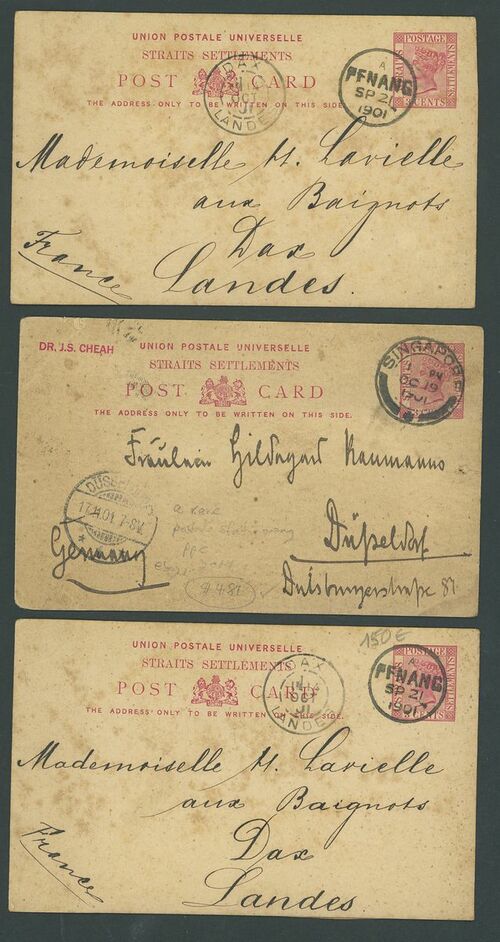 UNION POSTALE UNIVERSELLE
STRAITS SETTLEMENTS
POST CARD
THE ADDRESS ONLY TO BE WRITTEN ON THIS SIDE.
POSTAGE
CENTS
DAX
LANDES
A
PENANG
SP 21
1901
Mademoiselle H. Lavielle
aux Baignots
Dax
Landes.
France
DR. J.S. CHEAH
UNION POSTALE UNIVERSELLE
STRAITS SETTLEMENTS
POST CARD
THE ADDRESS ONLY TO BE WRITTEN ON THIS SIDE.
SINGAPORE
OC 19
1901
Fräulein Hildegard Naumanns
DÜSSELDORF
17.11.01. 7-8V.
Düßeldorf
Germany
Duisburgerstraße 81
a rare
postal stationary
PPC
150€
UNION POSTALE UNIVERSELLE
STRAITS SETTLEMENTS
POST CARD
THE ADDRESS ONLY TO BE WRITTEN ON THIS SIDE.
POSTAGE
CENTS
DAX
OCT
LANDES
A
PENANG
SP 21
1901
Mademoiselle H. Lavielle
aux Baignots
Dax
Landes
France